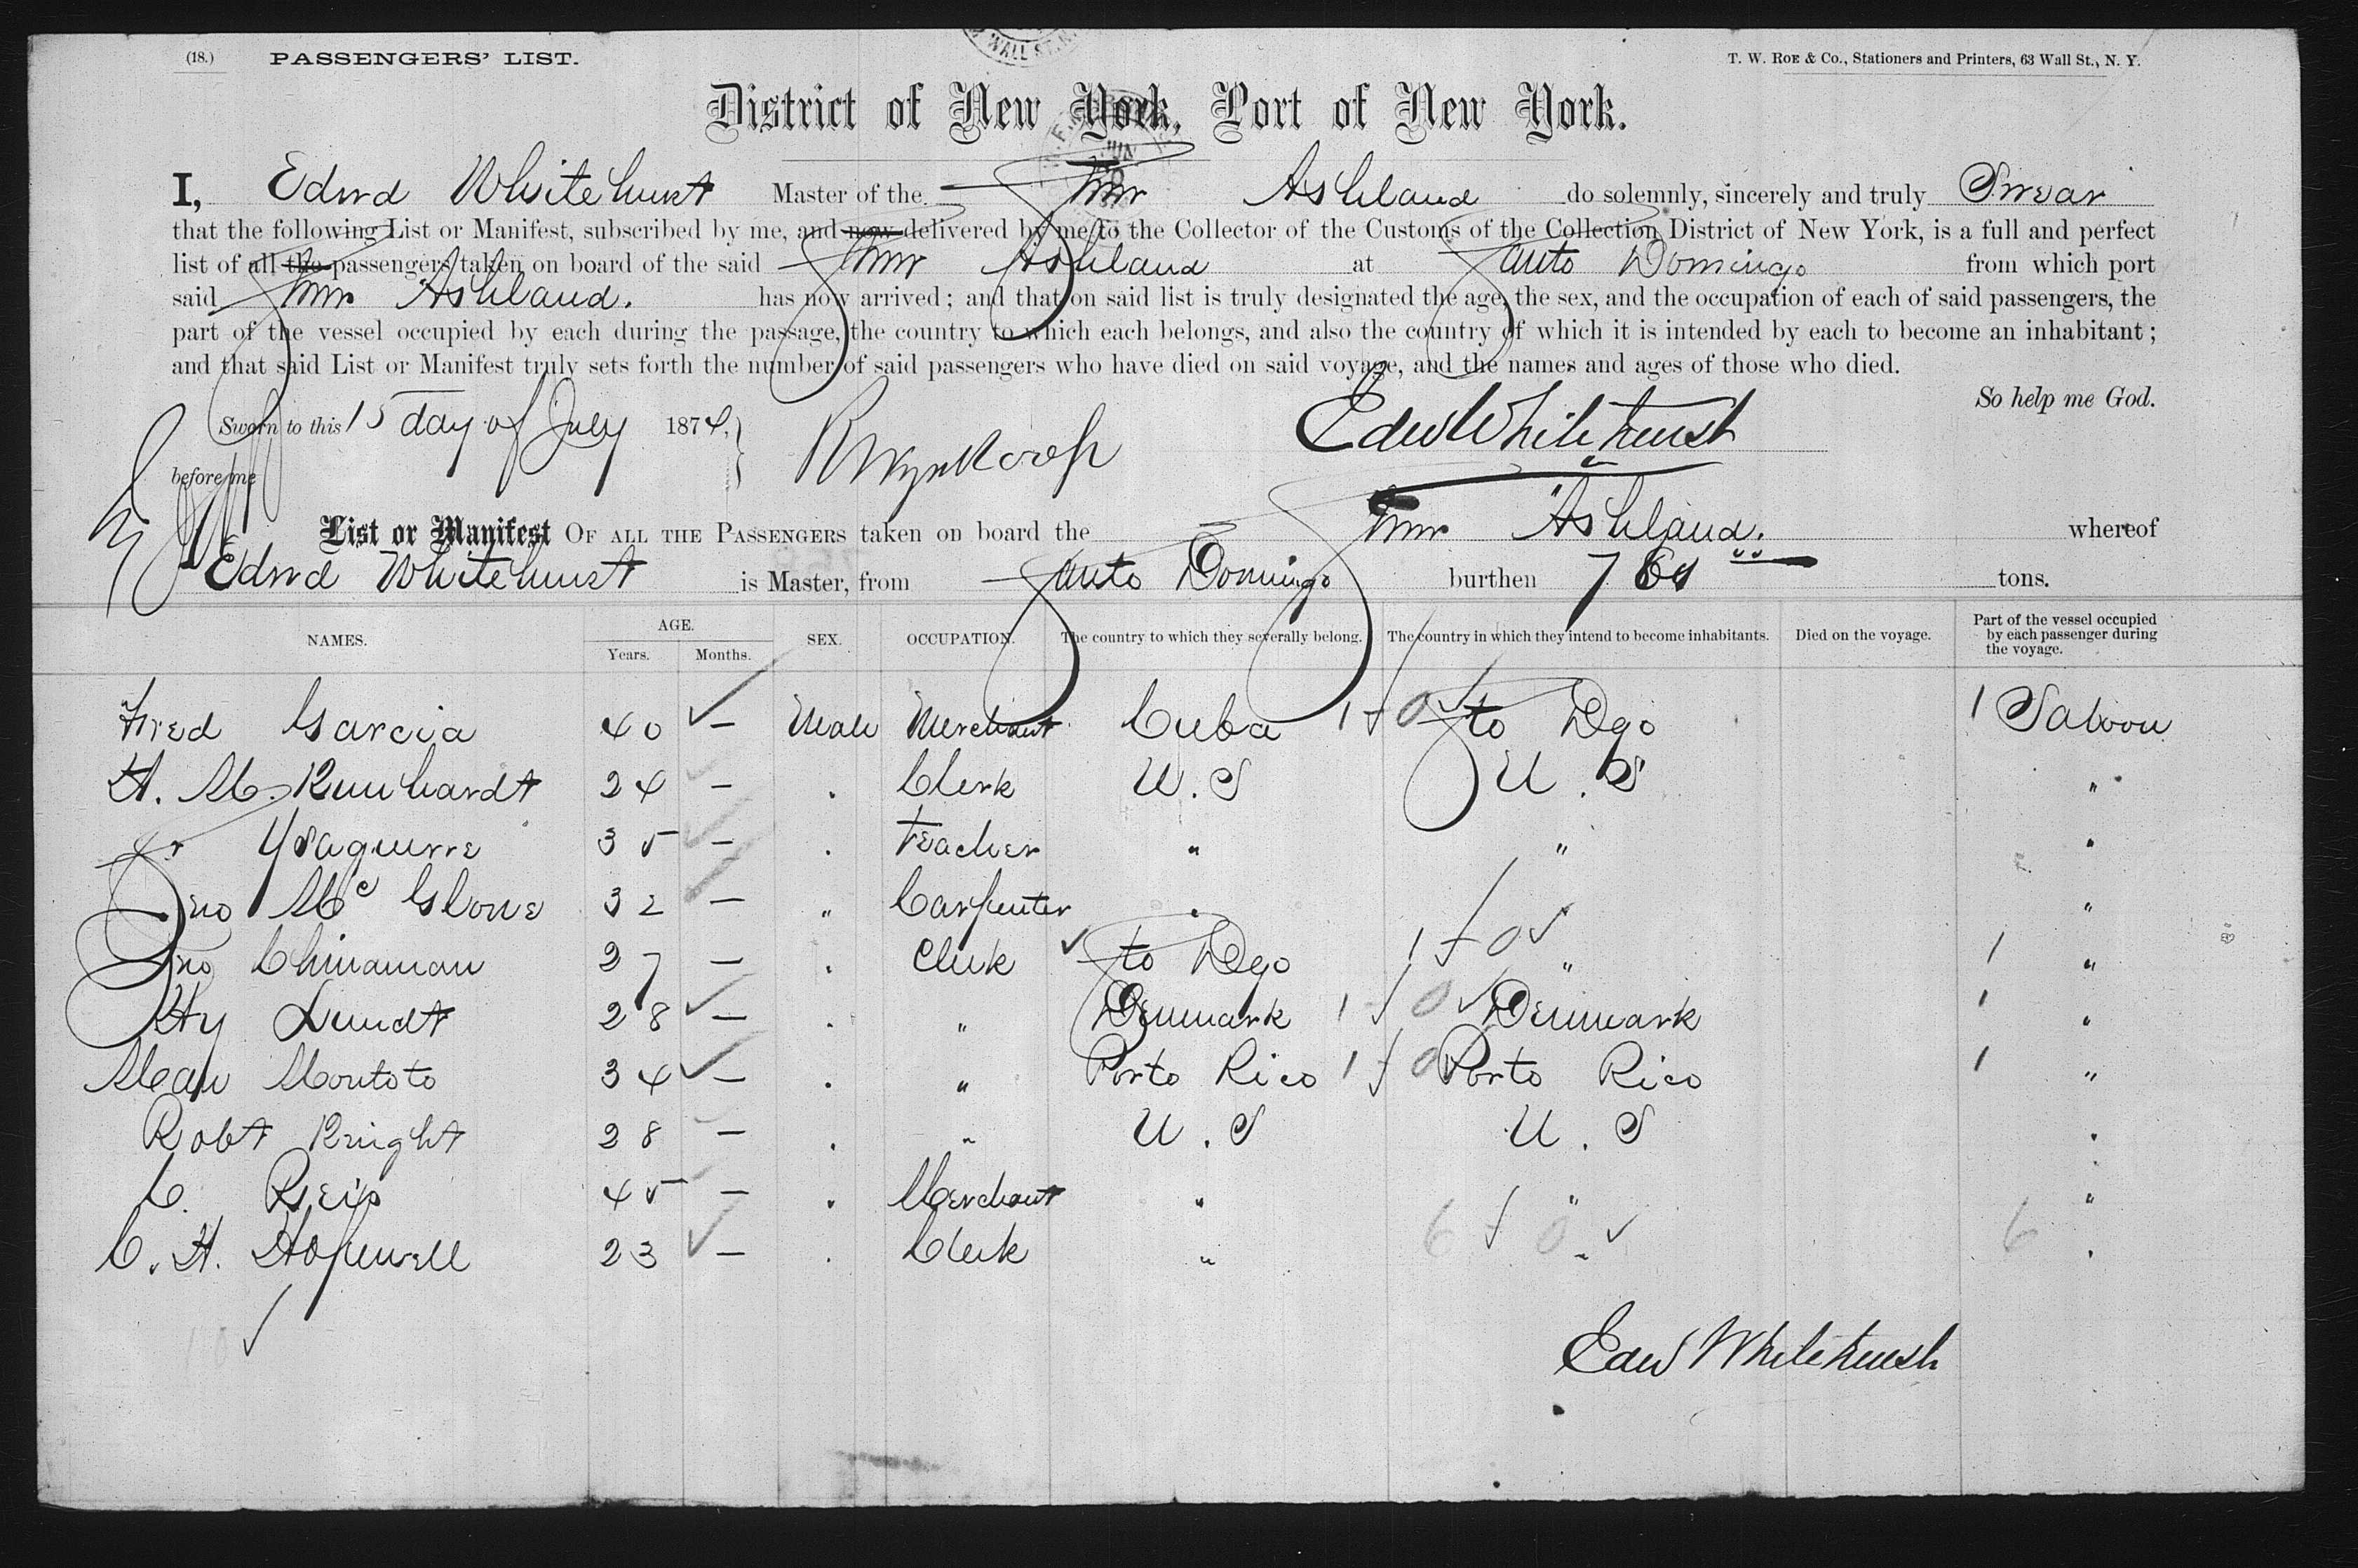 (18.) PASSENGERS' LIST.
WALL ST. N.
T. W. ROE & Co., Stationers and Printers, 63 Wall St., N. Y.
District of New York, Port of New York.
I, Edwd Whitehurst Master of the Stmr Ashland do solemnly, sincerely and truly Swear
that the following List or Manifest, subscribed by me, and now delivered by me to the Collector of the Customs of the Collection District of New York, is a full and perfect
list of all the passengers taken on board of the said Stmr Ashland at Santo Domingo from which port
said Stmr Ashland. has now arrived; and that on said list is truly designated the age, the sex, and the occupation of each of said passengers, the
part of the vessel occupied by each during the passage, the country to which each belongs, and also the country of which it is intended by each to become an inhabitant;
and that said List or Manifest truly sets forth the number of said passengers who have died on said voyage, and the names and ages of those who died.
So help me God.
Sworn to this 15 day of July 1874,
before me
Edw Whitehurst
List or Manifest OF ALL THE PASSENGERS taken on board the Stmr Ashland. whereof
Edwd Whitehurst is Master, from Santo Domingo burthen tons.
NAMES. AGE. Years. Months. SEX. OCCUPATION. The country to which they severally belong. The country in which they intend to become inhabitants. Died on the voyage. Part of the vessel occupied by each passenger during the voyage.
Fred Garcia 40 — Male Merchant Cuba Sto Dgo 1 Saloon
H. M. Kunhardt 24 — " Clerk U.S U.S "
Sr Ysaguirre 35 — " Teacher " " "
Jno Mc Glone 32 — " Carpenter " " "
Jno Chinaman 27 — " Clerk Sto Dgo " 1 "
Hy Lundt 28 — " " Denmark Denmark 1 "
Man Montoto 34 — " " Porto Rico Porto Rico 1 "
Robt Knight 28 — " " U.S U.S "
C. 45 — " Merchant " " "
C. H. Hopewell 23 — " Clerk " " 6 "
10
Edw Whitehurst